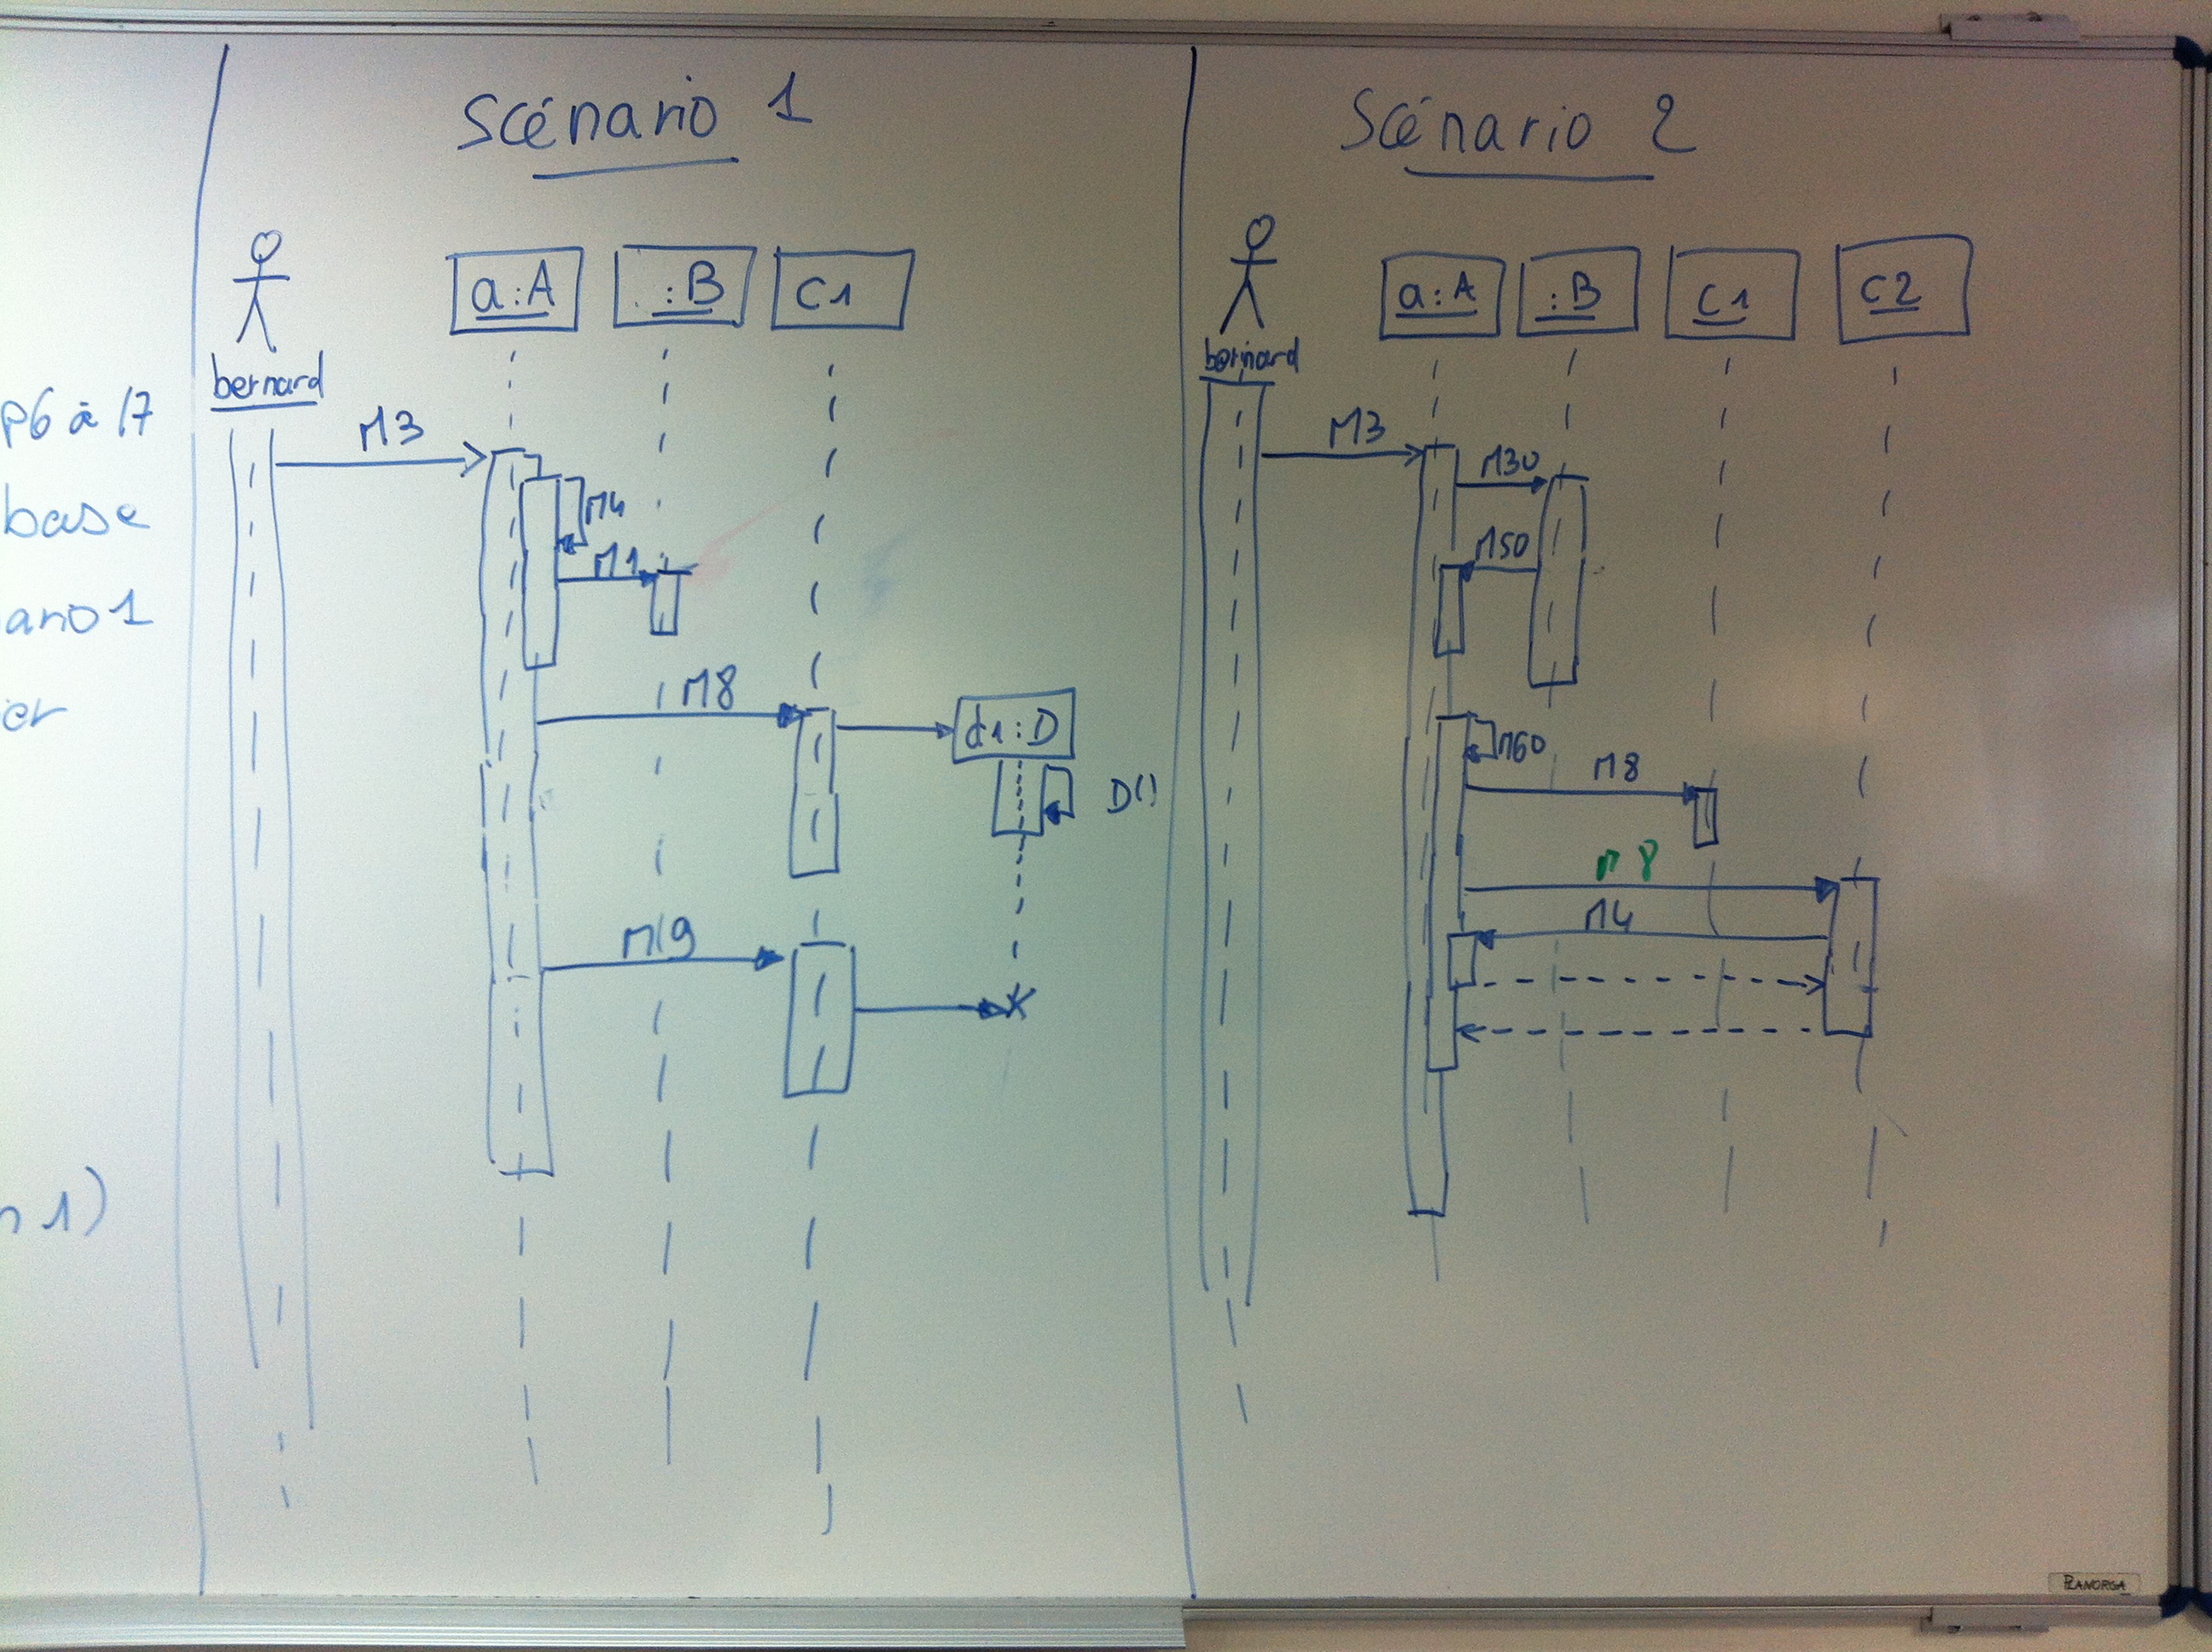 p6 à 17
base
ario 1
er
n 1)
Scénario 1
bernard
a:A
:B
C1
M3
M4
M1
M8
d1:D
D()
M9
Scénario 2
bernard
a:A
:B
C1
C2
M3
M30
M50
M60
M8
M8
M4
PLANORGA